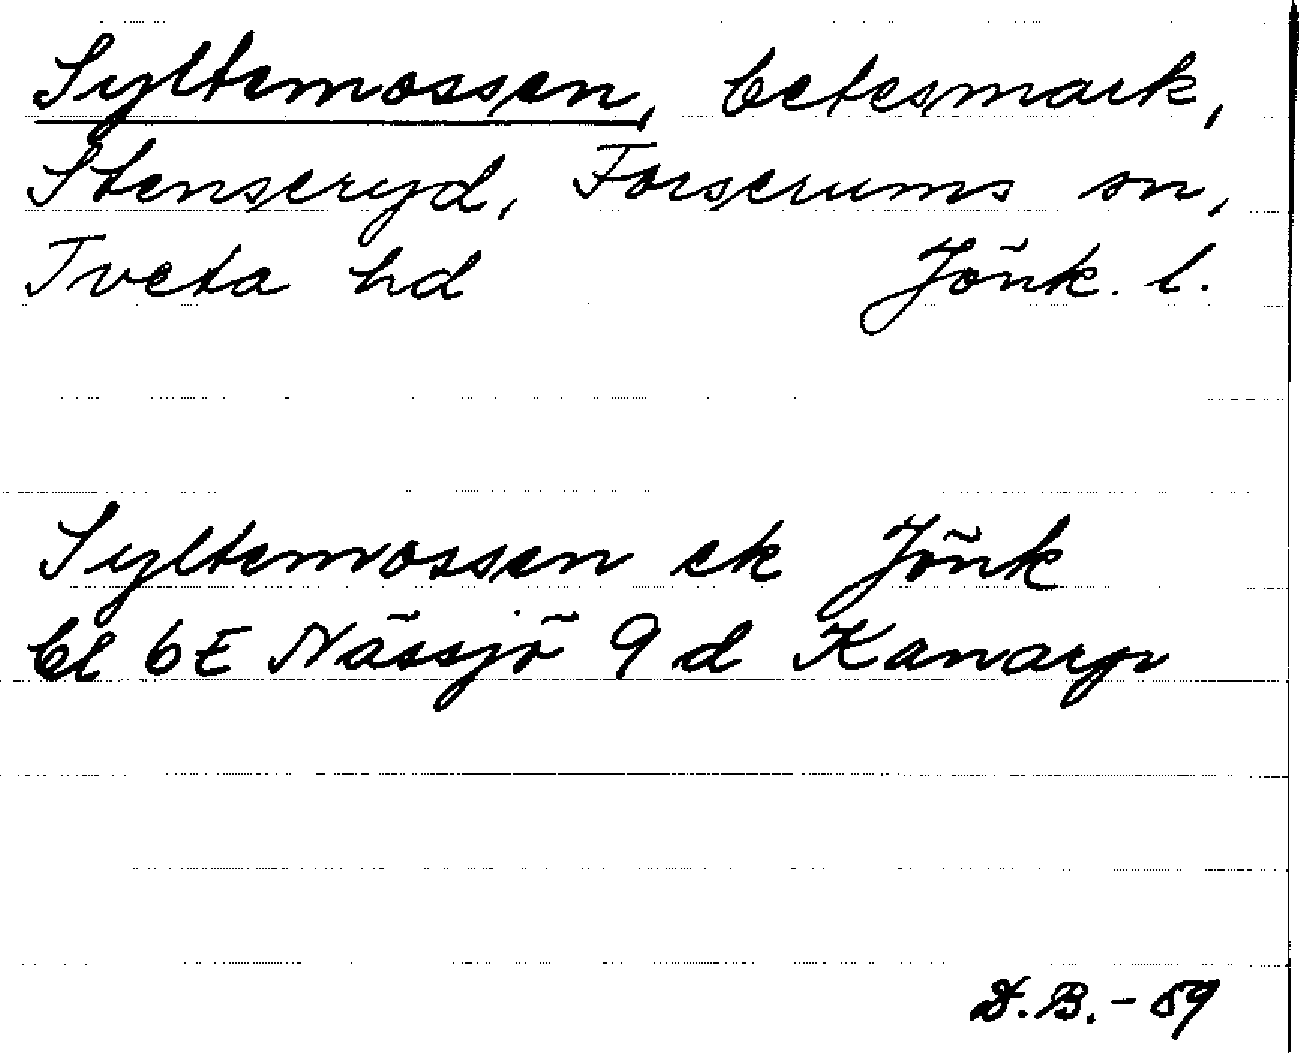 Syltemossen, betesmark,
Stenseryd, Forserums sn,
Tveta hd Jönk. l.
Syltemossen ek Jönk
bl 6E Nässjö 9 d Kanarp
D.B. - 59